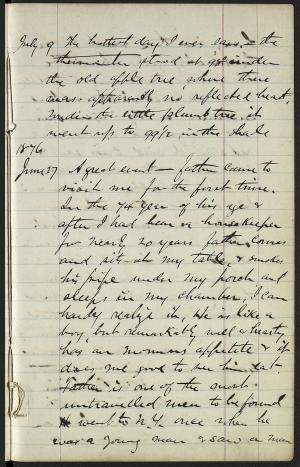 July 9 The hottest day I ever saw, – the
thermometer stood at 98 under
the old apple tree, where there
was apparently no reflected heat.
Under the little plumb tree, it
went up to 99½ in the shade
1876
June 27 A great event – father came to
visit me for the first time.
In the 74 year of his age &
after I had been a housekeeper
for nearly 20 years father comes
and sits at my table, & smokes
his pipe under my porch and
sleeps in my chamber. I can
hardly realize it. He is like a
boy, but remarkably well & hearty
has an enormous appetite & it
does me good to see him eat
Father is one of the most
untravelled men to be found
He went to N.Y. once when he
was a young man & saw a man